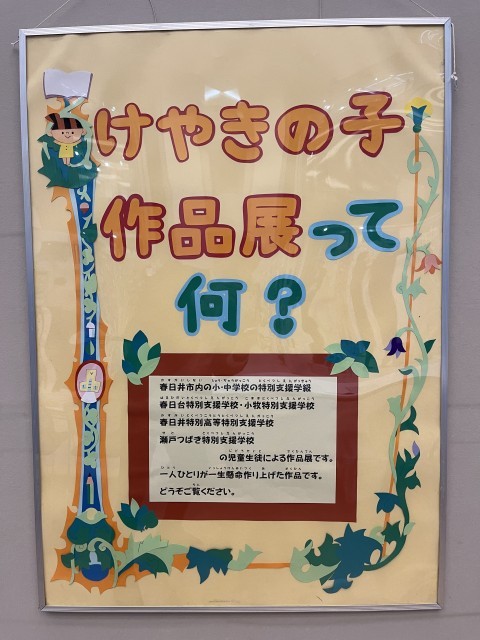 けやきの子
作品展って
何？
春日井市内の小・中学校の特別支援学級
春日台特別支援学校・小牧特別支援学校
春日井特別高等特別支援学校
瀬戸つばき特別支援学校
の児童生徒による作品展です。
一人ひとりが一生懸命作り上げた作品です。
どうぞご覧ください。